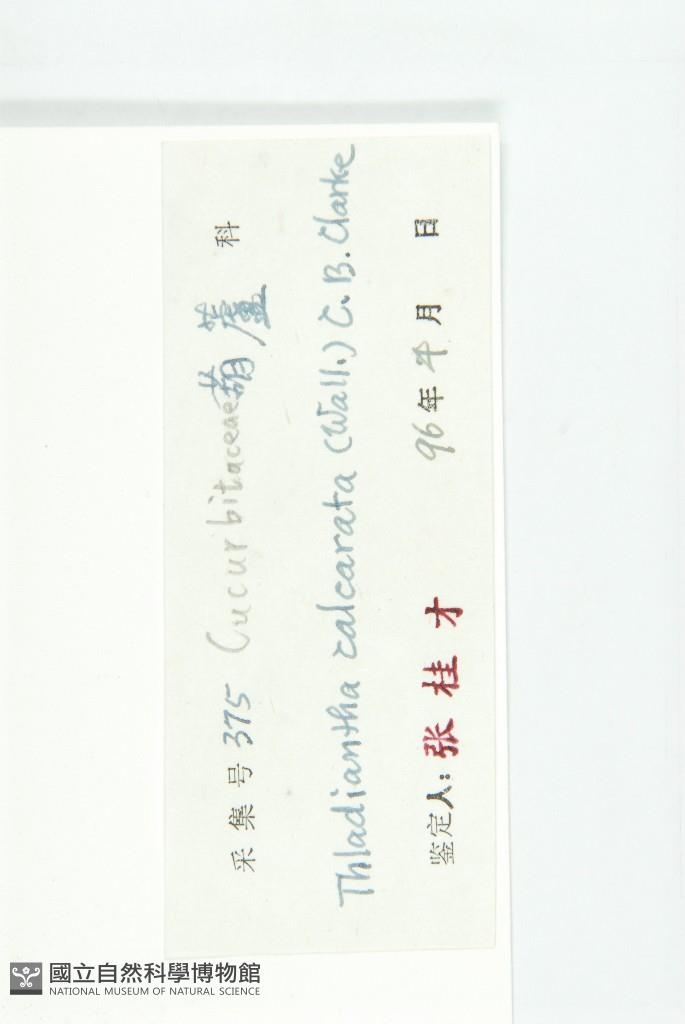 采集号 375 Cucurbitaceae 葫蘆 科
Thladiantha calcarata (Wall.) C. B. Clarke
鉴定人: 张桂才 96年 4月 日
國立自然科學博物館
NATIONAL MUSEUM OF NATURAL SCIENCE